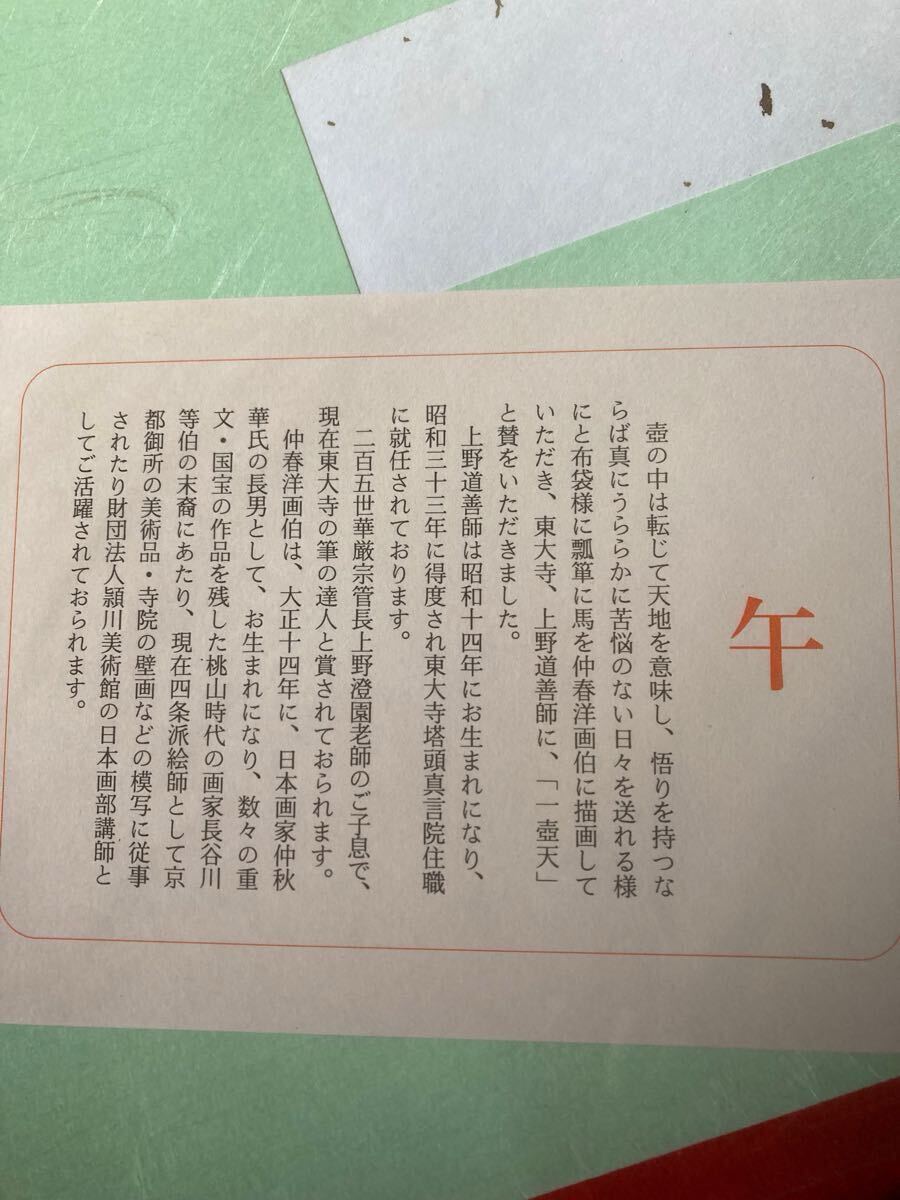 午
壺の中は転じて天地を意味し、悟りを持つな
らば真にうららかに苦悩のない日々を送れる様
にと布袋様に瓢箪に馬を仲春洋画伯に描画して
いただき、東大寺、上野道善師に、「一壺天」
と賛をいただきました。
上野道善師は昭和十四年にお生まれになり、
昭和三十三年に得度され東大寺塔頭真言院住職
に就任されております。
二百五世華厳宗管長上野澄園老師のご子息で、
現在東大寺の筆の達人と賞されておられます。
仲春洋画伯は、大正十四年に、日本画家仲秋
華氏の長男として、お生まれになり、数々の重
文・国宝の作品を残した桃山時代の画家長谷川
等伯の末裔にあたり、現在四条派絵師として京
都御所の美術品・寺院の壁画などの模写に従事
されたり財団法人頴川美術館の日本画部講師と
してご活躍されておられます。